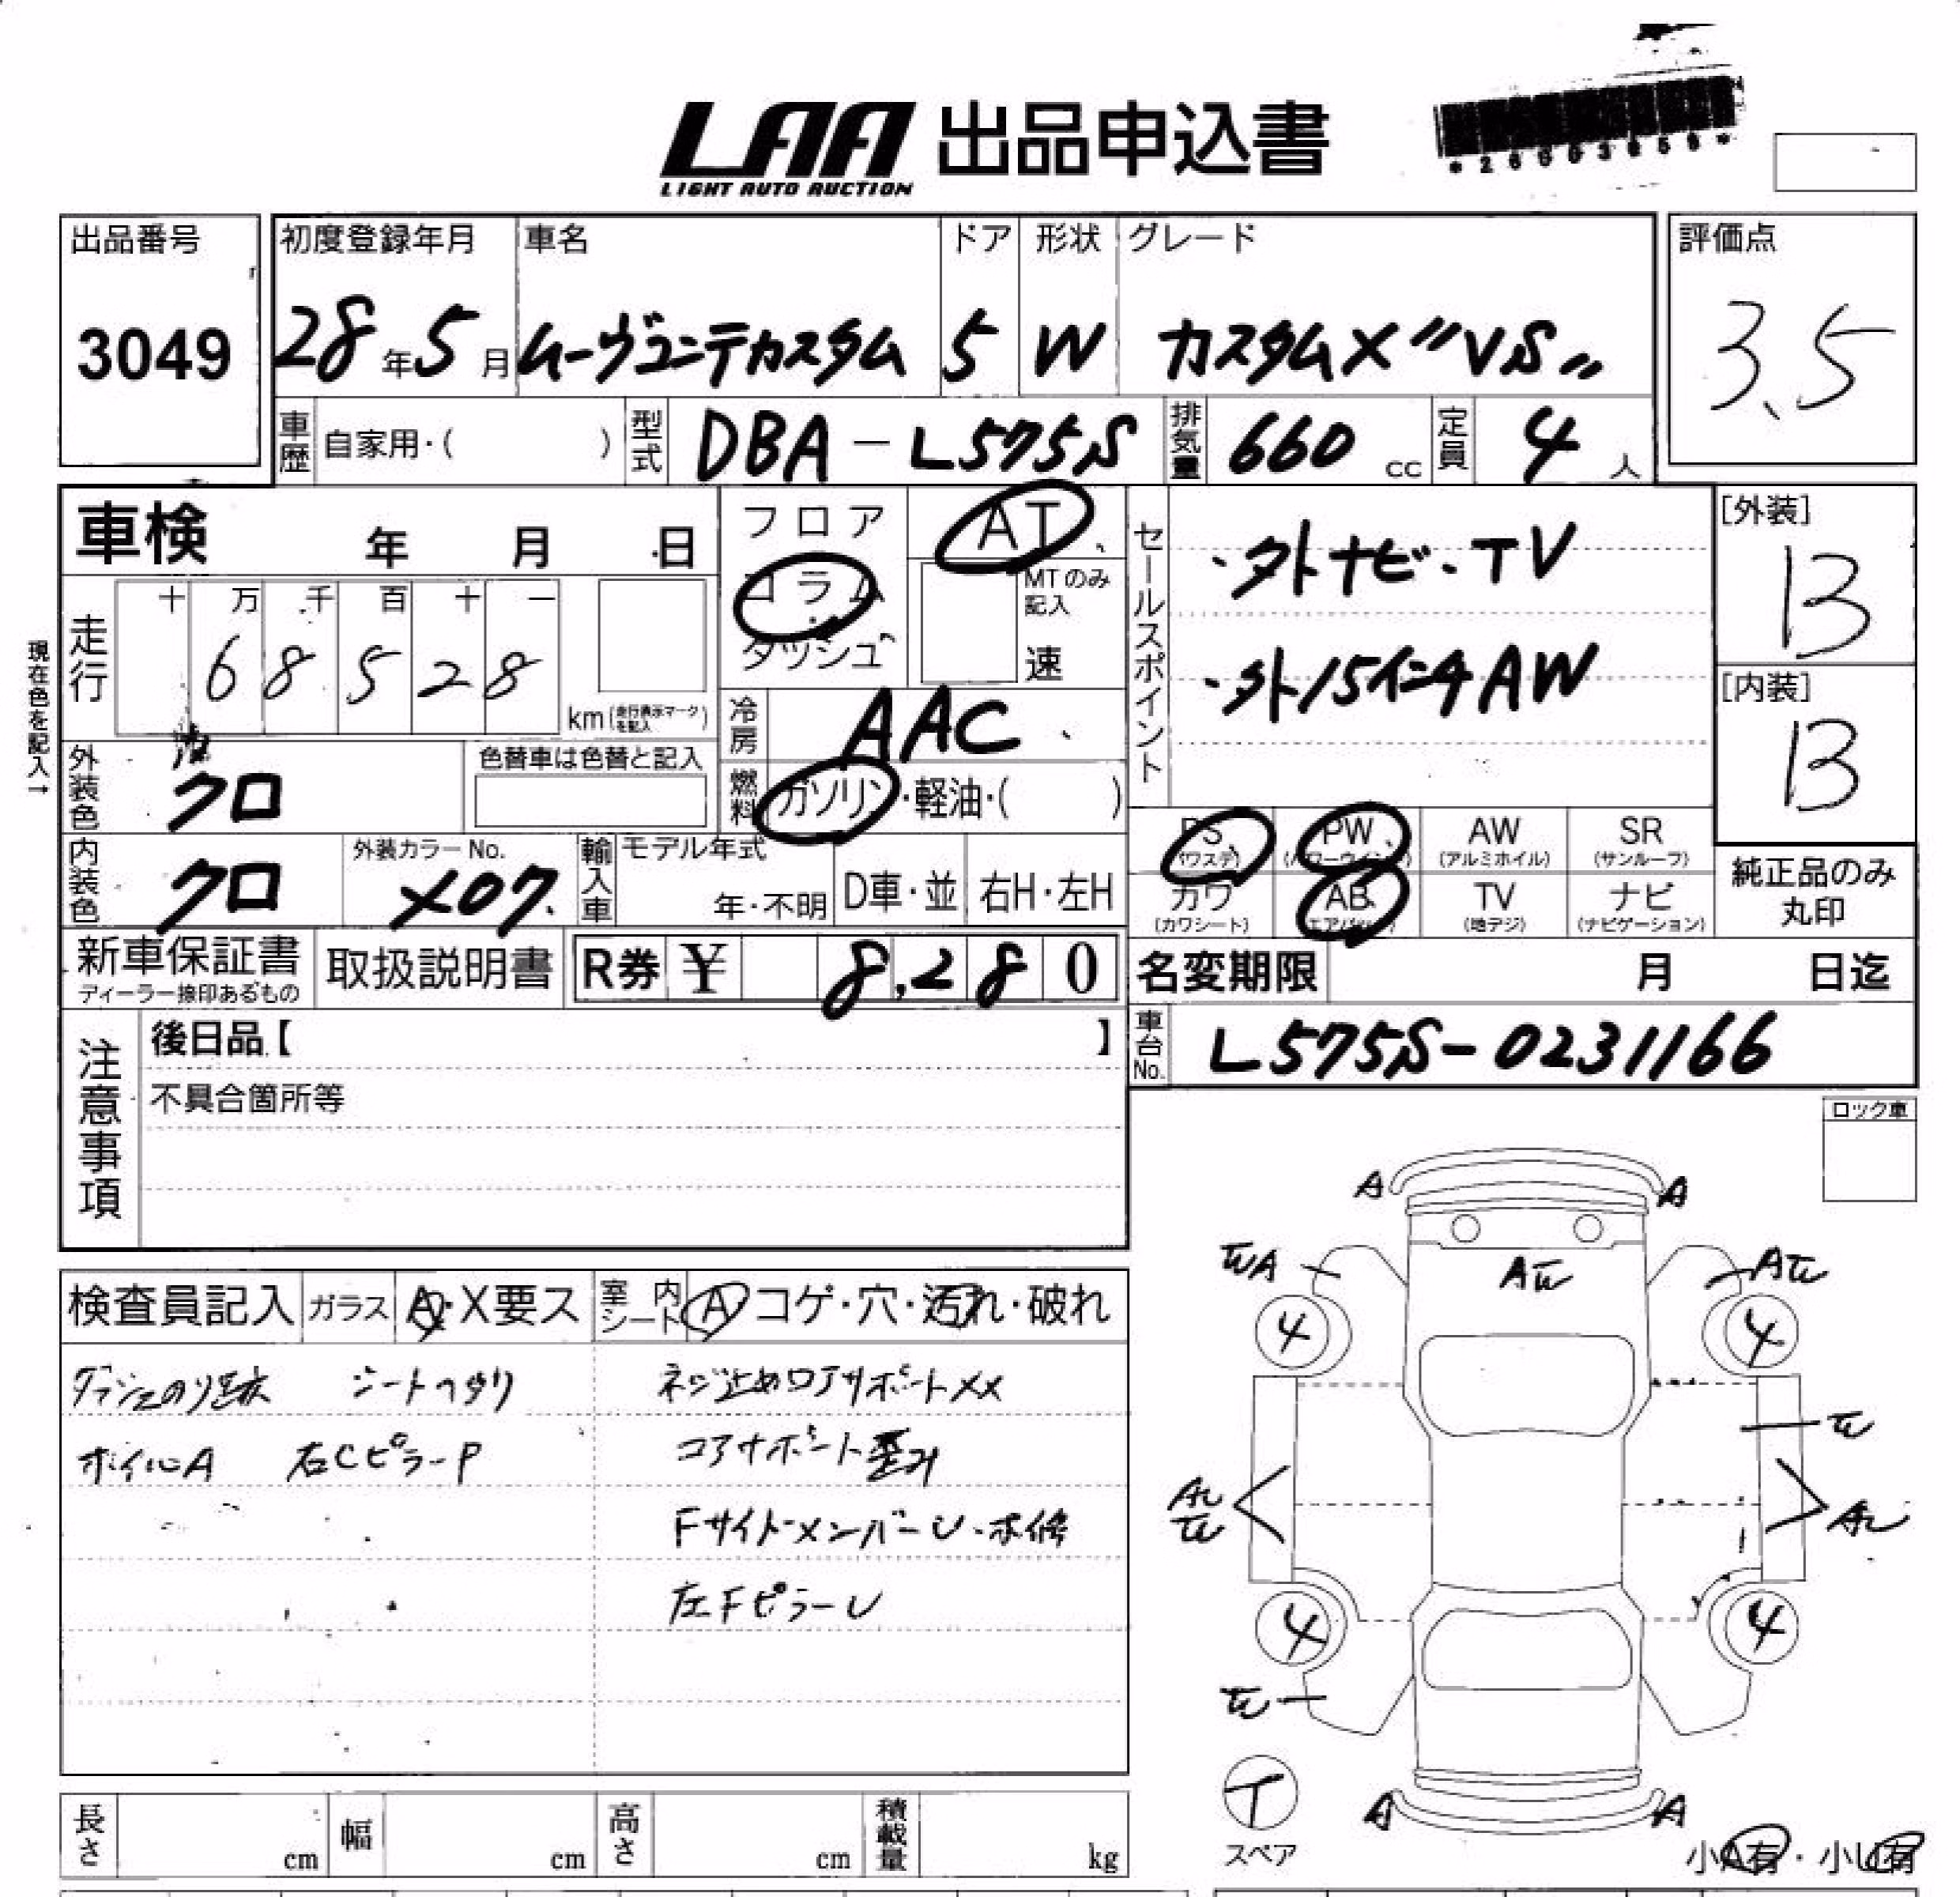 LAA 出品申込書
LIGHT AUTO AUCTION
出品番号 初度登録年月 車名 ドア 形状 グレード 評価点
3049 28年5月 ムーヴコンテカスタム 5 W カスタムX〃VS〃 3.5
車歴 自家用・( ) 型式 DBA-L575S 排気量 660cc 定員 4人
車検 年 月 日
フロア AT
コラム
ダッシュ
MTのみ記入
速
セールスポイント
・外ナビ・TV
・外15インチAW
[外装]
B
[内装]
B
現在色を記入→
走行 十 万 千 百 十 一
6 8 5 2 8
km(走行表示マークを記入)
冷房 AAC
外装色 クロ 色替車は色替と記入
燃料 ガソリン・軽油・( )
PS(パワステ) PW(パワーウインド) AW(アルミホイル) SR(サンルーフ)
カワ(カワシート) AB(エアバッグ) TV(地デジ) ナビ(ナビゲーション)
純正品のみ丸印
内装色 クロ 外装カラーNo. X07 輸入車 モデル年式 年・不明 D車・並 右H・左H
新車保証書 ディーラー捺印あるもの 取扱説明書 R券 ¥ 8,280
名変期限 月 日迄
車台No. L575S-0231166
注意事項
後日品【 】
不具合箇所等
ロック車
検査員記入 ガラス A・X要ス 室内シート A コゲ・穴・汚れ・破れ
ダッシュのり跡 シートヘタリ ネジ止めロアサポートXX
ホイルA 右CピラーP コアサポート歪み
FサイドメンバーU・ホ修
左FピラーU
A A
A
4 4
4 4
A A
スペア
小A有・小U有
長さ cm 幅 cm 高さ cm 積載量 kg